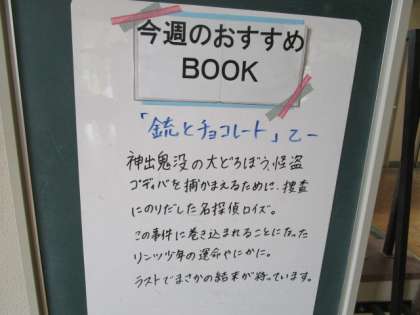 今週のおすすめ
BOOK
「銃とチョコレート」乙一
神出鬼没の大どろぼう、怪盗
ゴディバを捕かまえるために、捜査
にのりだした名探偵ロイズ。
この事件に巻き込まれることになった
リンツ少年の運命やいかに。
ラストでまさかの結末が待っています。